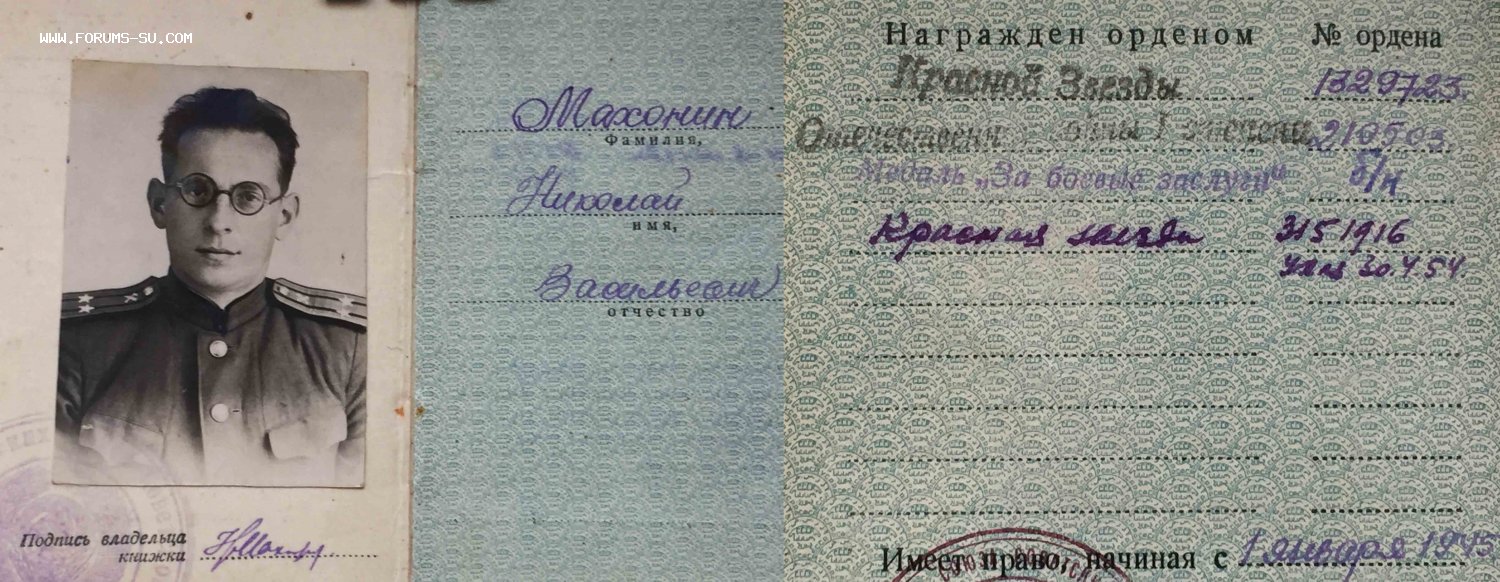 WWW.FORUMS-SU.COM
Подпись владельца
книжки
Махонин
Фамилия,
Николай
имя,
Васильевич
отчество
Награжден орденом № ордена
Красной Звезды 1329723.
Отечественн I степени 210503
Медаль „За боевые заслуги" б/н
Красная звезда 3151916
Указ 30.4 54
Имеет право, начиная с 1 января 1945